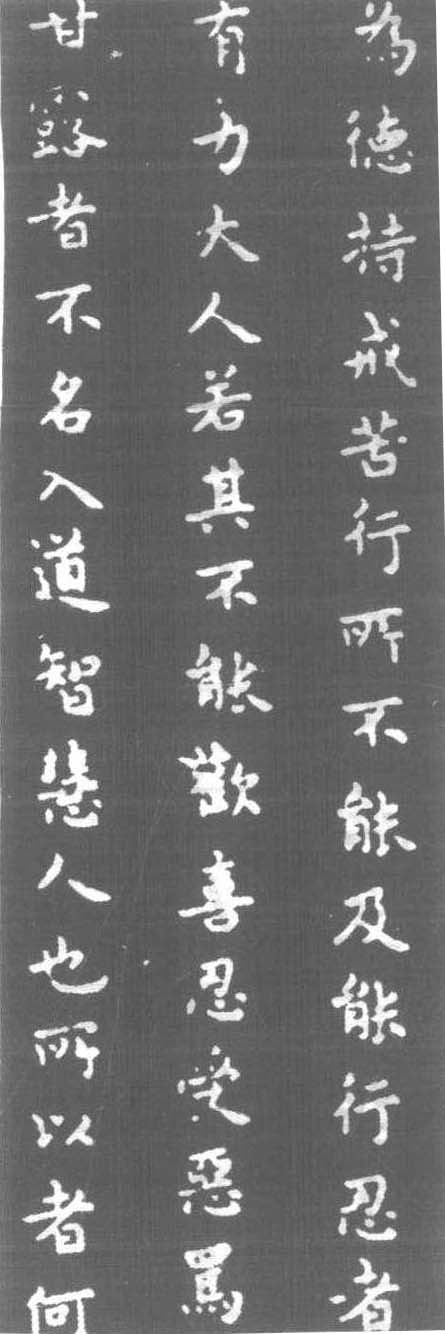 為德持戒苦行所不能及能行忍者
有力大人若其不能歡喜忍受惡罵
甘露者不名入道智慧人也所以者何